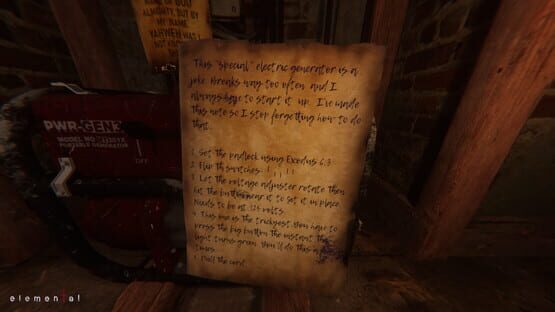 NAME OF GOD
ALMIGHTY, BUT BY
MY NAME
YAHWEH WAS I
NOT KNOWN
This "special" electric generator is a
joke. Breaks way too often and I
always have to start it up. I've made
this note so I stop forgetting how to do
that.
1. Set the padlock using Exodus 6:3
2. Flip th switches:
3. Let the voltage adjuster rotate then
hit the button near it to set it in place.
Needs to be at 125 volts.
4. This one is the trickyest. You have to
press the big button the instant the
light turns green. You'll do this
times.
Pull the cord.
PWR-GEN3
MODEL NO
PORTABLE GENERATOR
OFF
elemental